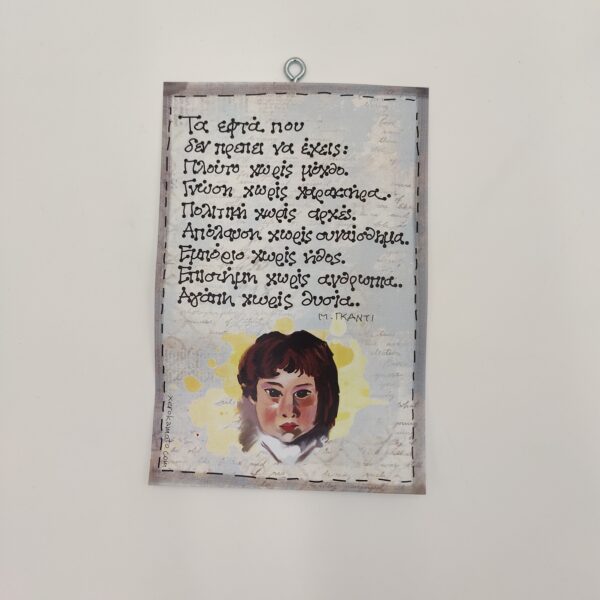 Τα εφτά που
δεν πρέπει να έχεις:
Πλούτο χωρίς μόχθο.
Γνώση χωρίς χαρακτήρα.
Πολιτική χωρίς αρχές.
Απόλαυση χωρίς συναίσθημα.
Εμπόριο χωρίς ήθος.
Επιστήμη χωρίς ανθρωπιά..
Αγάπη χωρίς θυσία..
Μ. ΓΚΑΝΤΙ